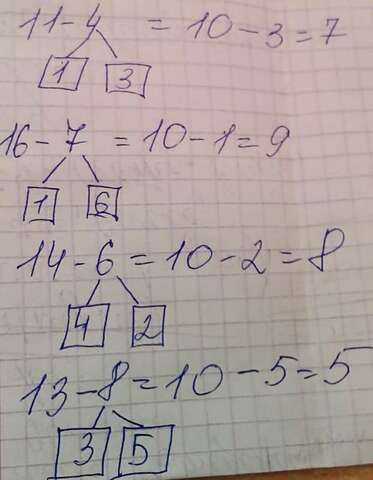 11-4 = 10-3=7
1 3
16-7 = 10-1=9
1 6
14-6=10-2=8
4 2
13-8=10-5=5
3 5